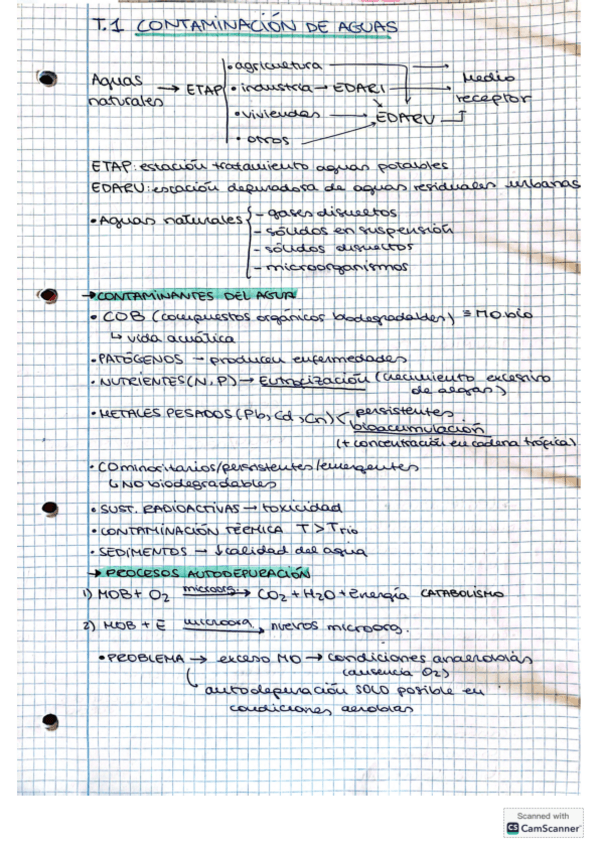 T.1 CONTAMINACIÓN DE AGUAS
Aguas naturales → ETAP
• agricultura
• industria → EDARI
• viviendas → EDARU
• otros
Medio receptor
ETAP: estación tratamiento aguas potables
EDARU: estación depuradora de aguas residuales urbanas
• Aguas naturales
- gases disueltos
- sólidos en suspensión
- sólidos disueltos
- microorganismos
→ CONTAMINANTES DEL AGUA
• COB (compuestos orgánicos biodegradables) ≡ MO bio
↳ vida acuática
• PATÓGENOS → producen enfermedades
• NUTRIENTES (N, P) → Eutrocización (crecimiento excesivo
de algas)
• METALES PESADOS (Pb, Cd, Cn) < persistentes
bioacumulación
(+ concentración en cadena trófica)
• CO minoritarios/persistentes/emergentes
↳ NO biodegradables
• SUST. RADIOACTIVAS → toxicidad
• CONTAMINACIÓN TÉRMICA T > T río
• SEDIMENTOS → ↓ calidad del agua
→ PROCESOS AUTODEPURACIÓN
1) MOB + O2 microorg. → CO2 + H2O + Energía CATABOLISMO
2) MOB + E microorg. → nuevos microorg.
• PROBLEMA → exceso MO → condiciones anaerobias
(ausencia O2)
↳ autodepuración SOLO posible en
condiciones aerobias
Scanned with
CS CamScanner